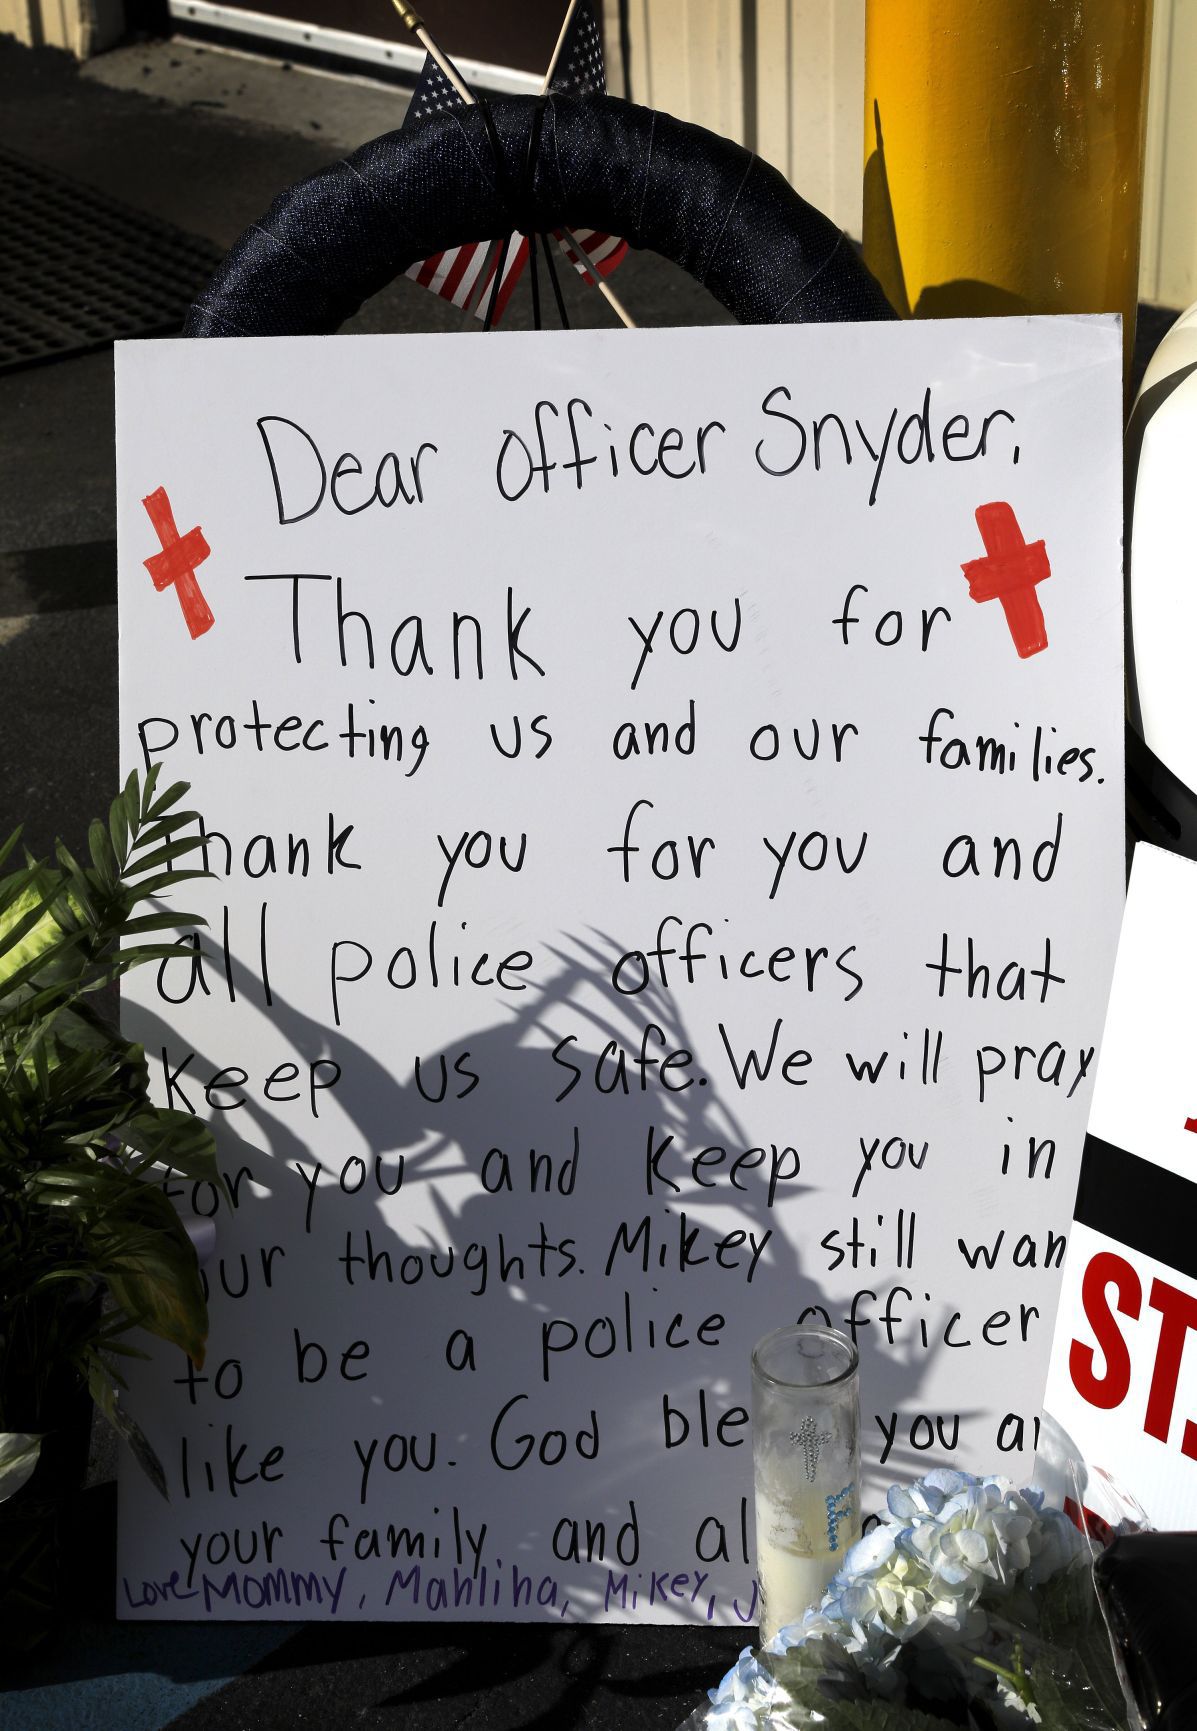 Dear officer Snyder,
Thank you for
protecting us and our families.
thank you for you and
all police officers that
keep us safe. We will pray
for you and keep you in
our thoughts. Mikey still wan
to be a police officer
like you. God ble you
your family and al
Love Mommy, Mahliha, Mikey, J
ST
F